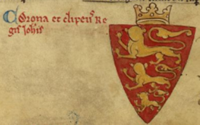 Corona et clipeus Re
gis Johis